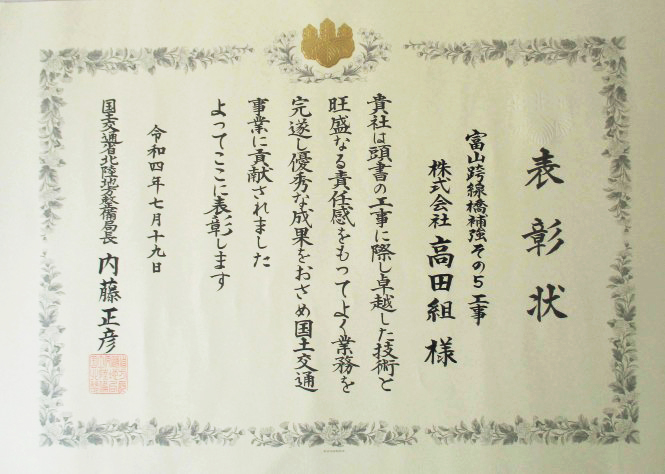 表彰状
富山跨線橋補強その5工事
株式会社 高田組 様
貴社は頭書の工事に際し卓越した技術と
旺盛なる責任感をもってよく業務を
完遂し優秀な成果をおさめ国土交通
事業に貢献されました
よってここに表彰します
令和四年七月十九日
国土交通省北陸地方整備局長 内藤正彦